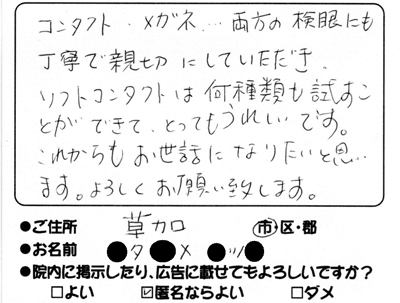 コンタクト・メガネ… 両方の検眼にも
丁寧で親切にしていただき、
ソフトコンタクトは何種類も試すこ
とができて、とってもうれしいです。
これからもお世話になりたいと思い
ます。よろしくお願い致します。
●ご住所 草加 市・区・郡
●お名前 ●タ●メ ●ッ●
●院内に掲示したり、広告に載せてもよろしいですか?
□よい ☑匿名ならよい □ダメ